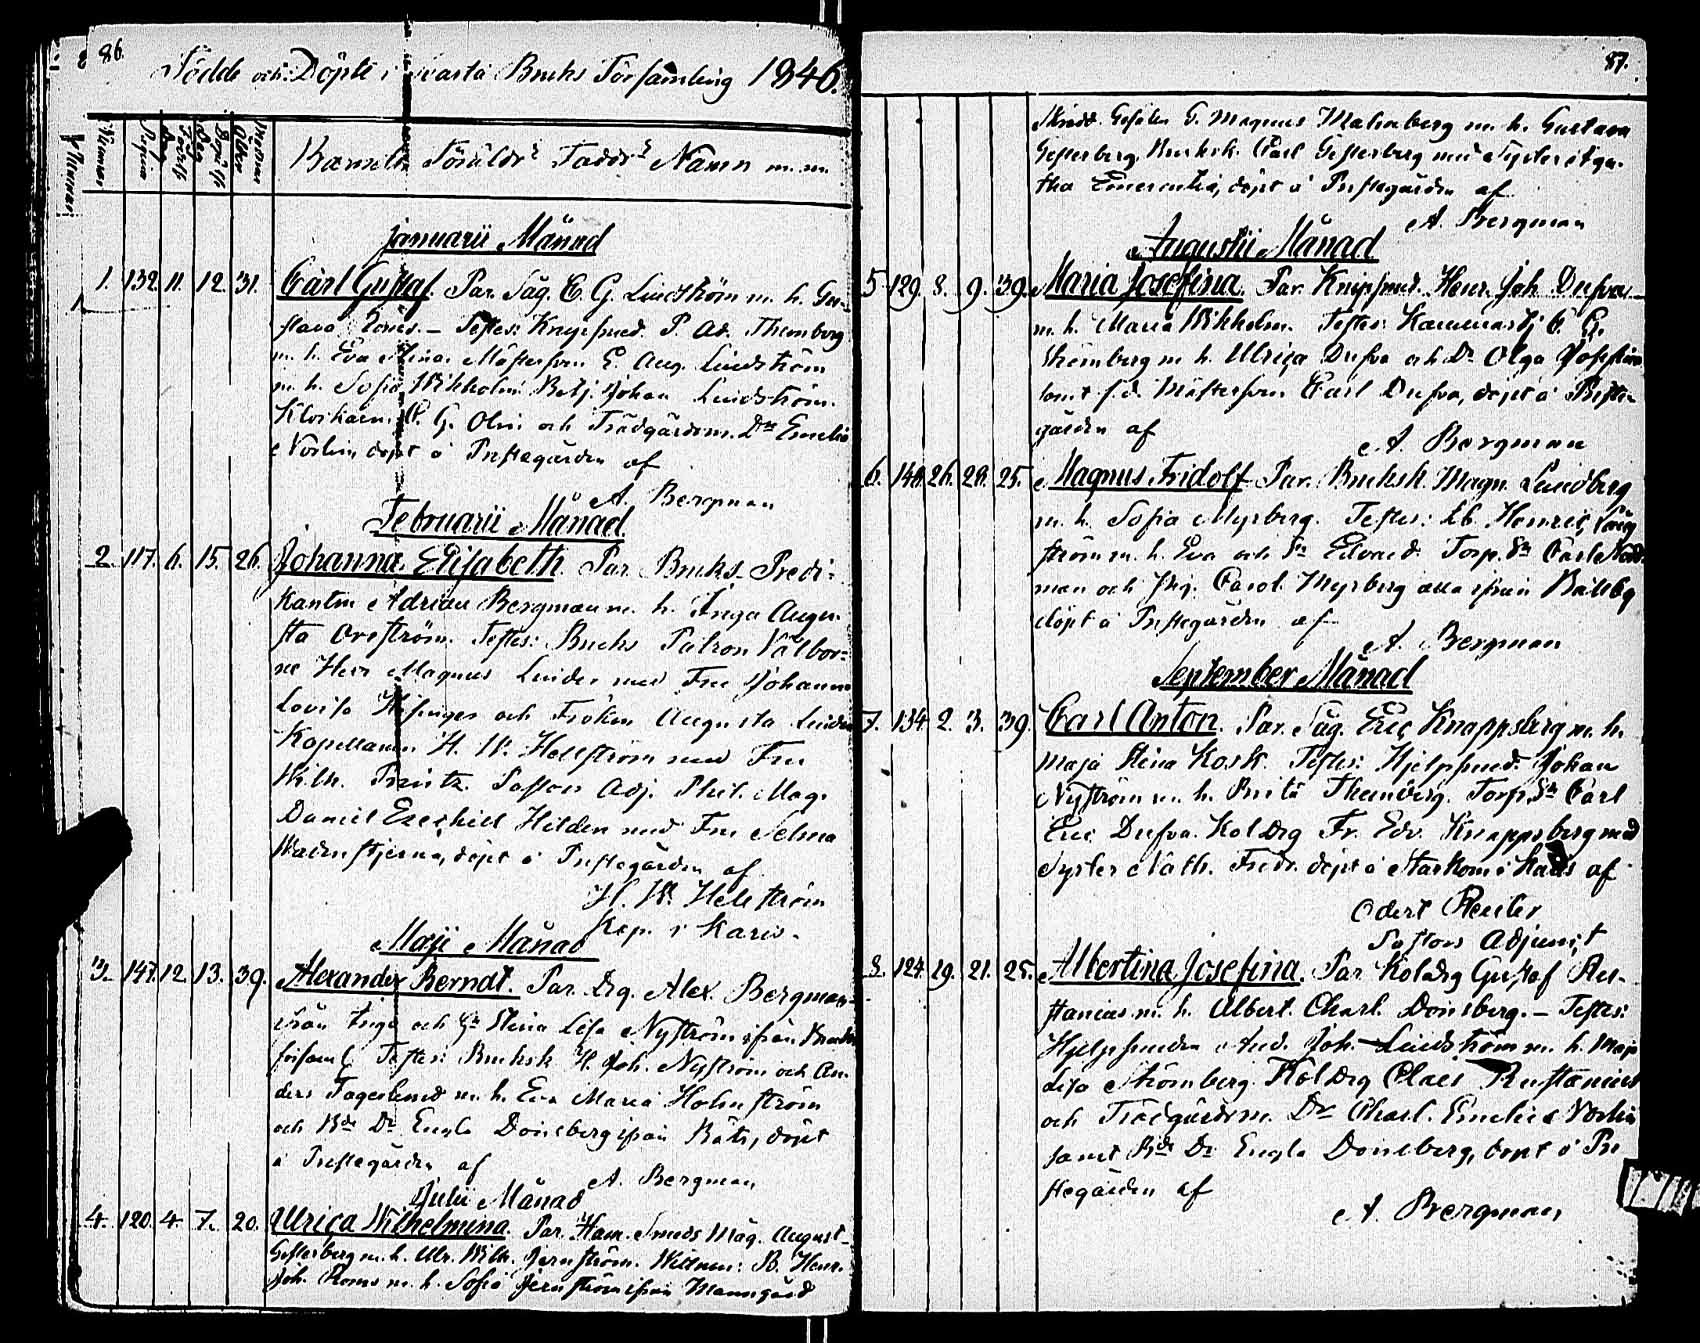 86.
Födde och Döpte i Svartå Bruks Församling 1846.
Nummer
Pagina
Dag Födelse
Dag Dopets
Modrens Ålder
Barnets Föräldrs Faddrs Namn m.m.
Januarii Månad
1. 132. 11. 12. 31. Carl Gustaf. Par. Såg. C. G. Lindström m. h. Gu-
stava Testes: Knipsmed. P. Ad. Thunberg
m. h. Eva Stina. Mästersven E. Aug. Lindström
m. h. Sofia Wikholm. Betj. Johan Lindström.
G. Olin och Trädgårdsm. Dr Emelie
Norlin döpt å Prestegården af
A. Bergman
Februarii Månad
2. 117. 6. 15. 26. Johanna Elisabeth. Par. Bruks-Predi-
kanten Adrian Bergman m. h. Inga Augu-
sta Orrström. Testes: Bruks Patron Välbor-
ne Herr Magnus Linder med Fru Johanna
Lovisa Hisinger och Fröken Augusta Linder
Kapellanen H. W. Hellström med Fru
Wilh. Printz Pastors Adj. Phil. Mag.
Daniel Ezechiel Hilden med Fru Selma
Wadenstjerna, döpt å Prestegården af
H. W. Hellström
Kap. i Karis.
Maji Månad
3. 147. 12. 13. 39. Alexander Berndt. Par. Drg. Alex. Bergman
ifrån Ingå och Hu Stina Lisa Nyström ifrån Bruks
församl. Testes: Bruksk. H. Joh. Nyström och An-
ders Fagerlund m. h. Eva Maria Holmström
och Bde Dr Engla Donsberg ifrån Bäts, döpt
å Prestegården af
A. Bergman
Julii Månad
4. 120. 4. 7. 20. Ulrica Wilhelmina. Par. Ham. Smeds Mäg. August
Gesterberg m. h. Ulr. Wilh. Jernström. Wittnen: B. Henr.
Joh. Roms m. h. Sofia Jernström ifrån Manngård
87.
Skrädd. Gesällen G. Magnus Malmberg m. h. Gustava
Gesterberg, Bruksk. Carl Gesterberg med Syster Aga-
tha Emerentia, döpt å Prestegården af
A. Bergman
Augustii Månad
5. 129. 8. 9. 39. Maria Josefina. Par. Knipsmed. Henr. Joh. Dufva
m. h. Maria Wikholm. Testes: Kammarskj. C. G.
Strömberg m. h. Ulrica Dufva och Dr Olga Josefina
samt f. d. Mästersven Carl Dufva, döpt å Preste-
gården af
A. Bergman
6. 26. 28. 25. Magnus Fridolf. Par. Bruksk. Magn. Lundberg
m. h. Sofia Myrberg. Testes: Lb. Henric Lång-
ström m. h. Eva och Sn Edvard. Torp. Sn Carl Nord-
man och Pig. Carol. Myrberg alla ifrån Bållby
döpt å Prestegården af
A. Bergman
September Månad
7. 134. 2. 3. 39. Carl Anton. Par. Såg. Eric Knappsberg m. h.
Maja Stina Kosk. Testes: Hjelpsmed. Johan
Nyström m. h. Brita Thunberg. Torp. Sn Carl
Eric Dufva. Koldrg Fr. Edv. Knappsberg med
Syster Nath. Fredr. döpt å Starkom i Karis af
Odert Reuter
Pastors Adjunct
8. 124. 19. 21. 25. Albertina Josefina. Par. Koldrg Gustaf Ru-
stanius m. h. Albert. Charl. Donsberg. – Testes:
Hjelpsmeden And. Joh. Lindström m. h. Maja
Lisa Strömberg. Koldrg Claes Rustanius
och Trädgårdsm. Dr Charl. Emelie Norlin
samt Bde Dr Engla Donsberg, döpt å Pre-
stegården af
A. Bergman